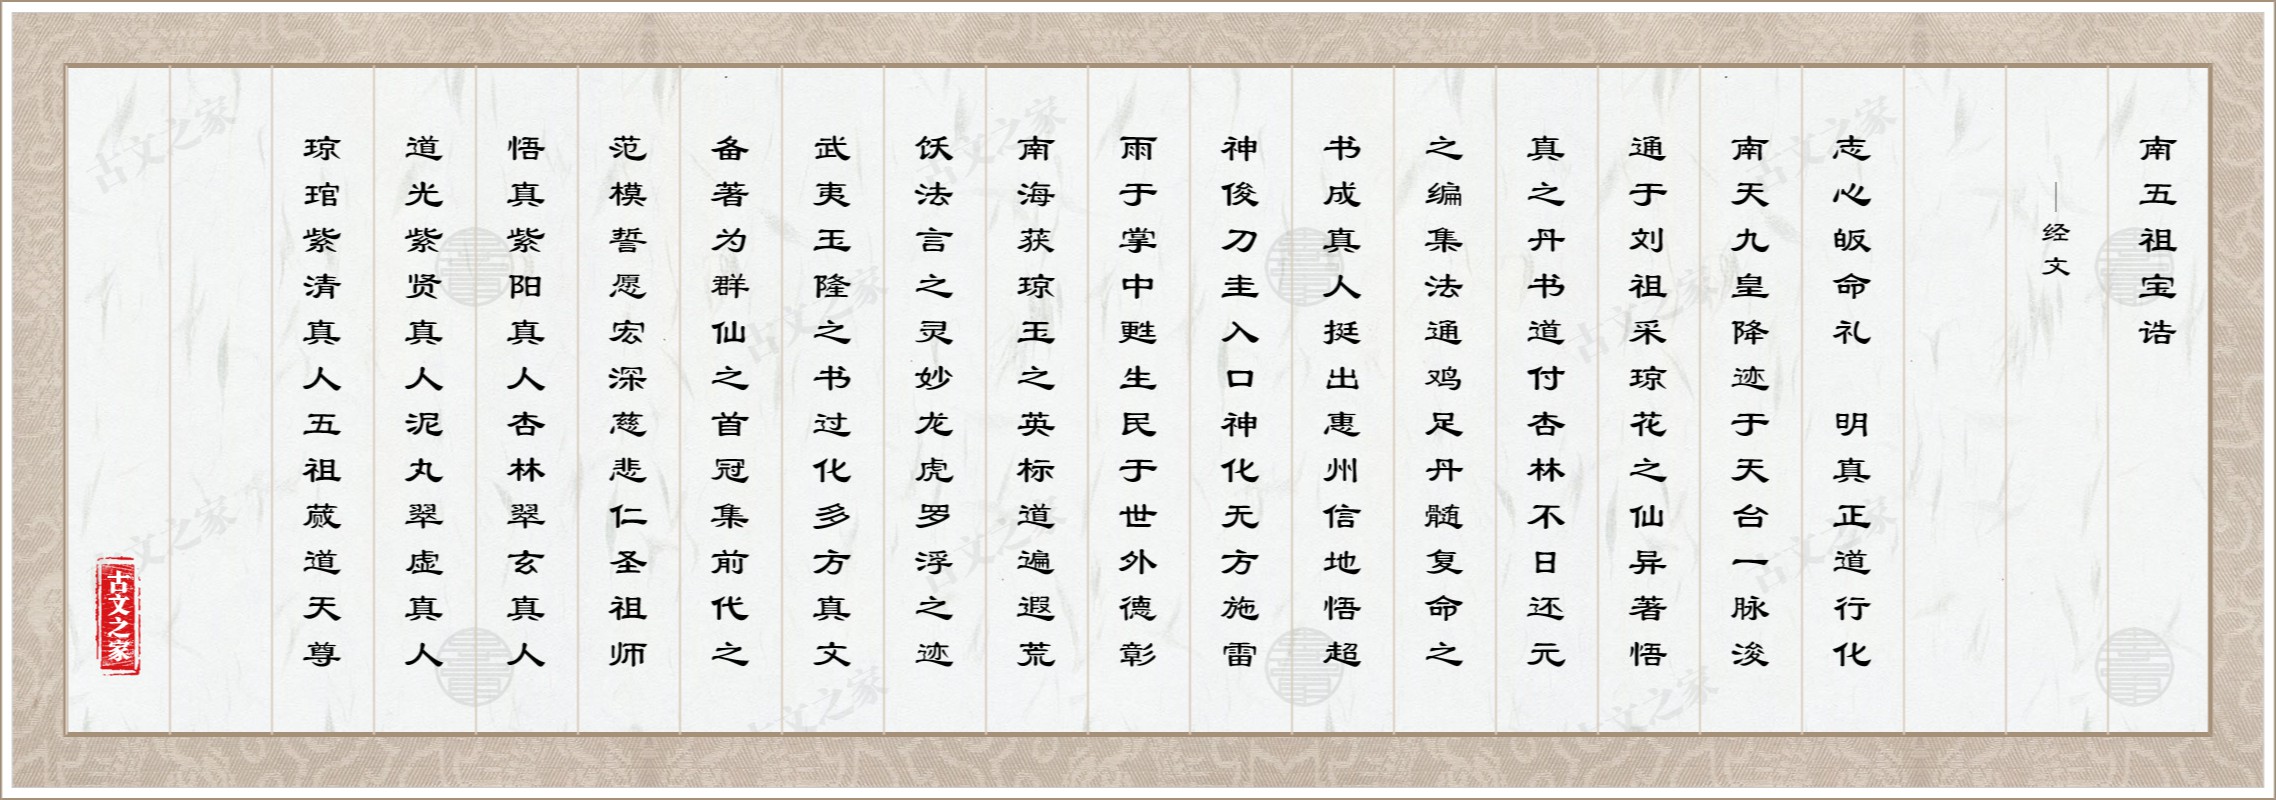 南五祖宝诰
—经文
志心皈命礼 明真正道行化
南天九皇降迹于天台一脉浚
通于刘祖采琼花之仙异著悟
真之丹书道付杏林不日还元
之编集法通鸡足丹髓复命之
书成真人挺出惠州信地悟超
神俊刀圭入口神化无方施雷
雨于掌中甦生民于世外德彰
南海获琼玉之英标道遍遐荒
饫法言之灵妙龙虎罗浮之迹
武夷玉隆之书过化多方真文
备著为群仙之首冠集前代之
范模誓愿宏深慈悲仁圣祖师
悟真紫阳真人杏林翠玄真人
道光紫贤真人泥丸翠虚真人
琼琯紫清真人五祖蒇道天尊
古文之家